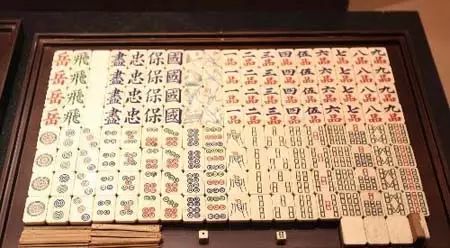 岳 飛 盡 忠 保 國 一 二 三 四 伍 六 七 八 九
品 品 品 品 品 品 品 品 品
岳 飛 盡 忠 保 國 一 二 三 四 伍 六 七 八 九
品 品 品 品 品 品 品 品 品
岳 飛 盡 忠 保 國 一 二 三 四 伍 六 七 八 九
品 品 品 品 品 品 品 品 品
岳 飛 盡 忠 保 國 一 二 三 四 伍 六 七 八 九
品 品 品 品 品 品 品 品 品